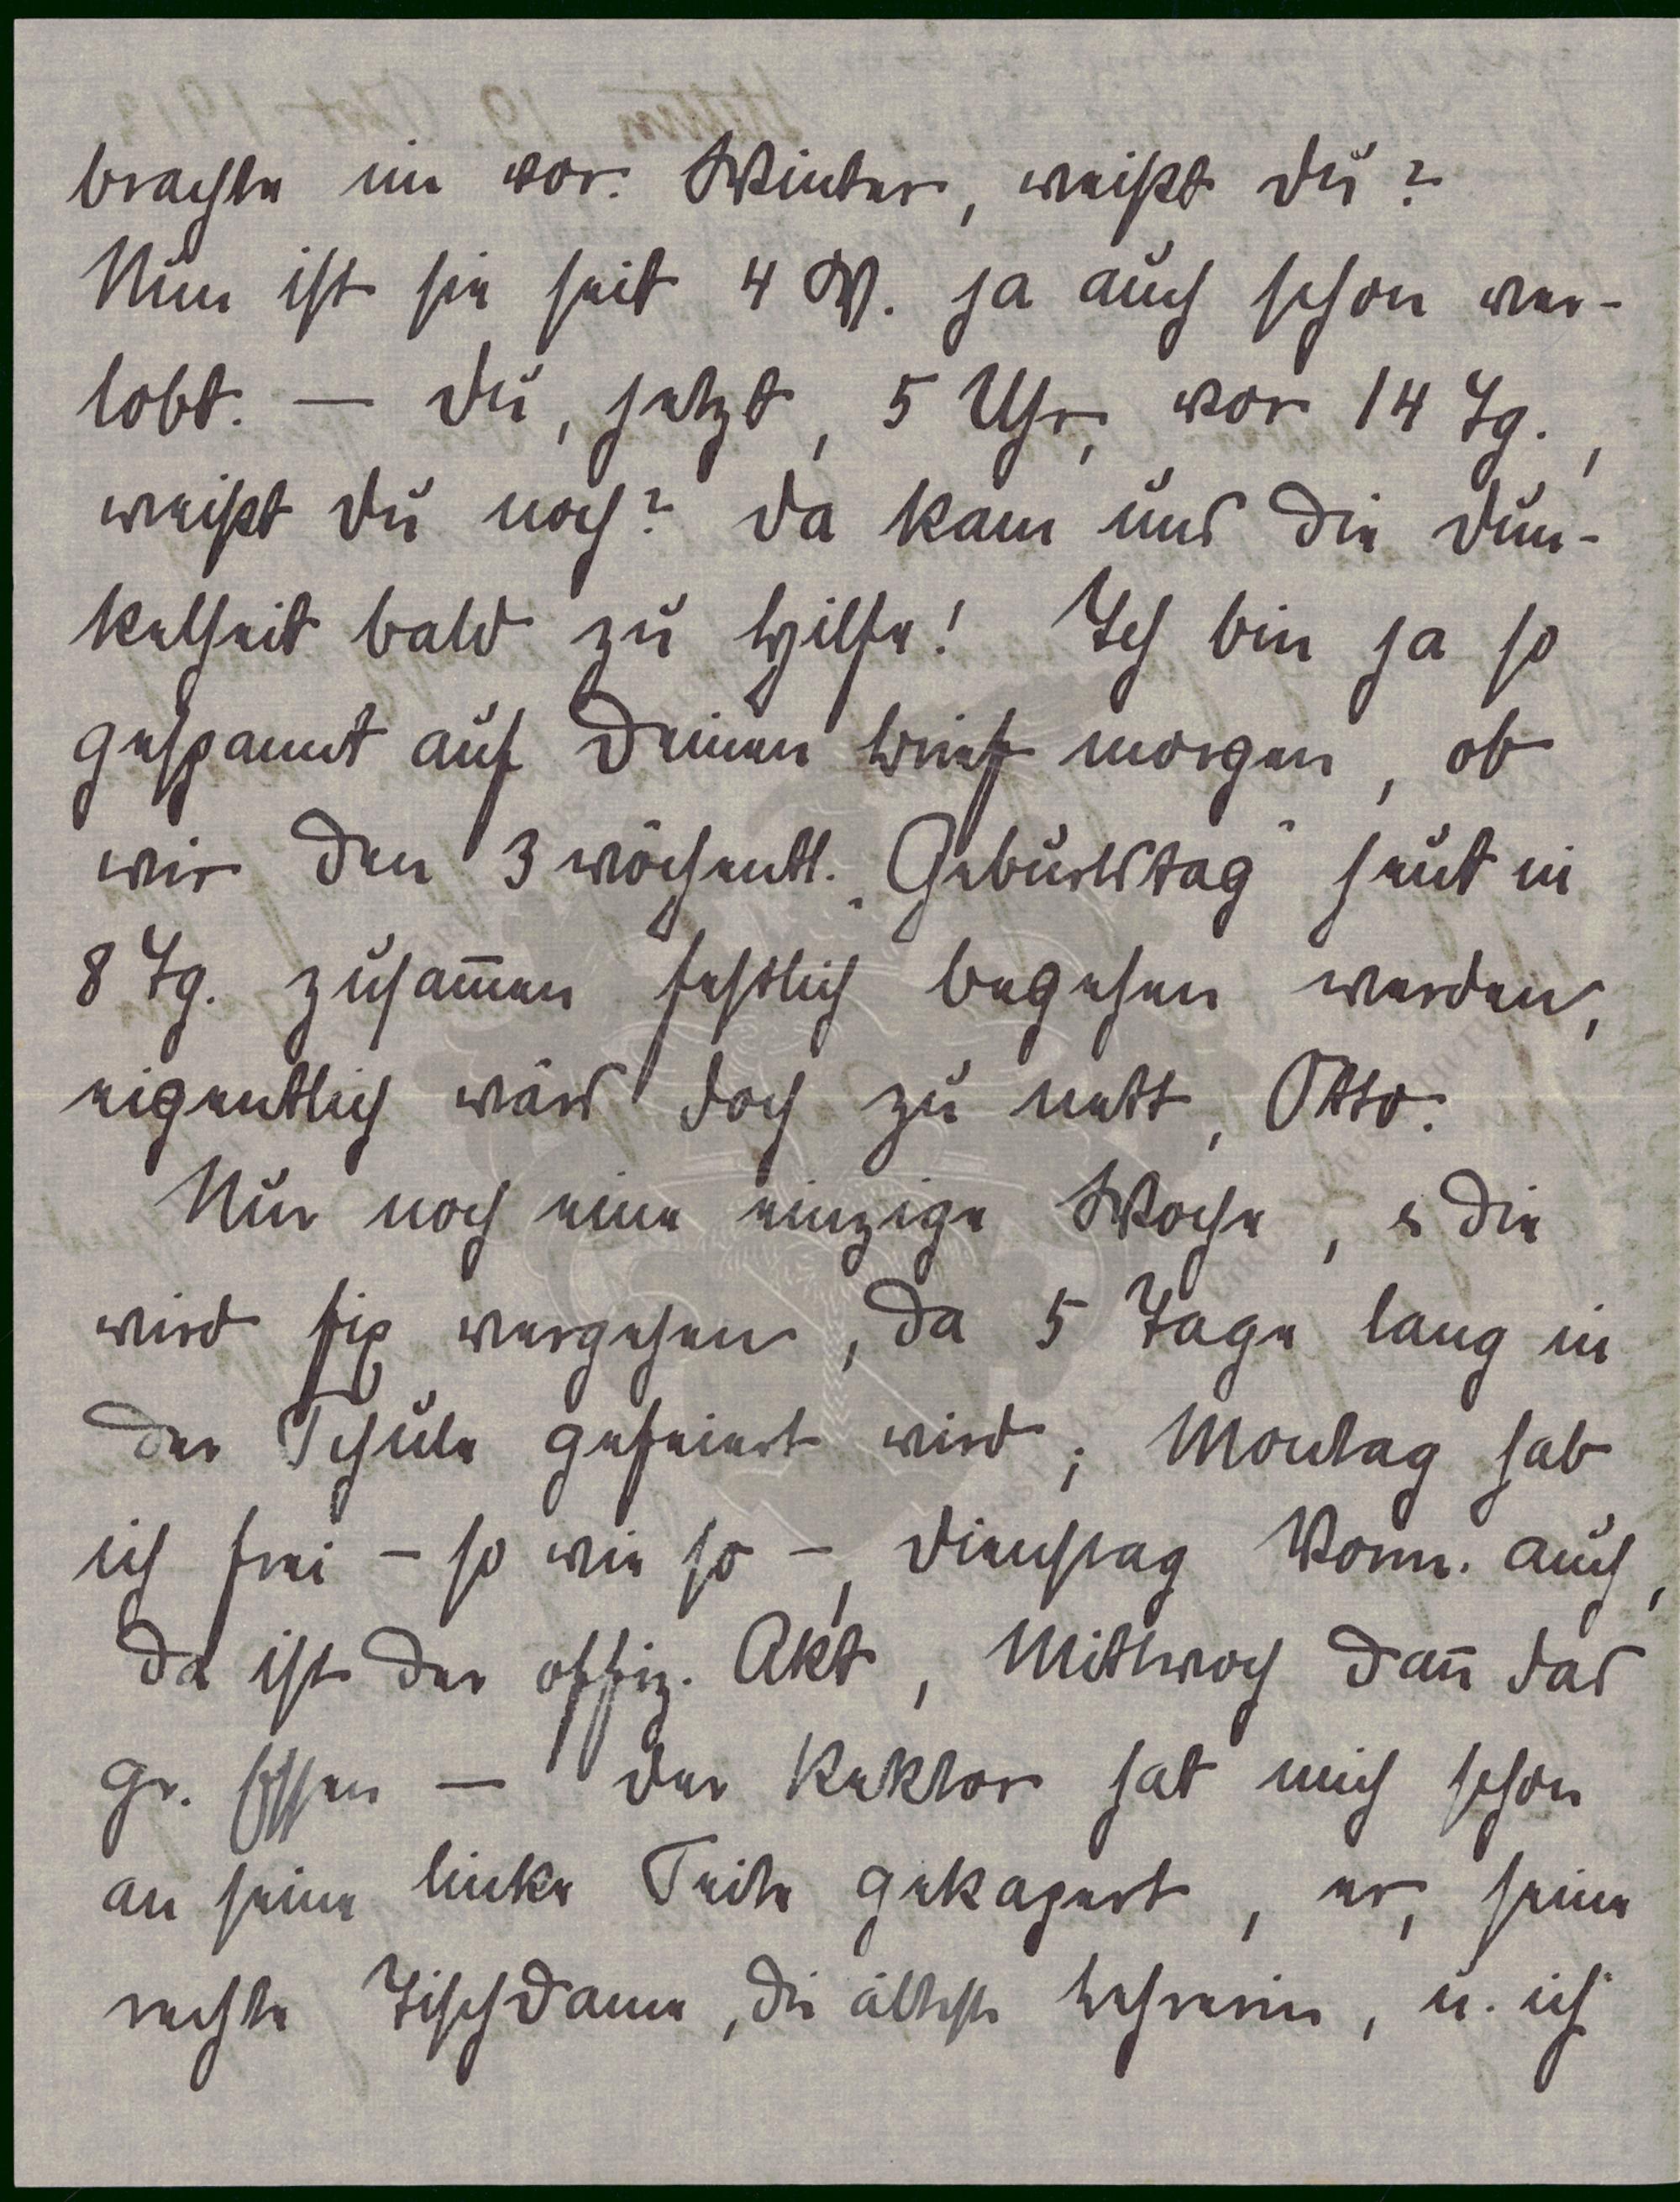 brachte im vor. Winter, weißt Du?
Nun ist sie seit 4 W. ja auch schon ver-
lobt. — Du, jetzt, 5 Uhr, vor 14 Tg.,
weißt Du noch? Da kam uns die Dun-
kelheit bald zu Hilfe! Ich bin ja so
gespannt auf Deinen Brief morgen, ob
wir den 3 wöchentl. „Geburtstag“ heut in
8 Tg. zusam̅en festlich begehen werden,
eigentlich wärs doch zu nett, Otto.
Nur noch eine einzige Woche, & die
wird fix vergehen, da 5 Tage lang in
der Schule gefeiert wird; Montag hab
ich frei – so wie so –, Dienstag Vorm. auch,
da ist der offiz. Akt, Mittwoch dan̅ das
gr. Essen — der Rektor hat mich schon
an seine linke Seite gekapert, er, seine
rechte Tischdame, die älteste Lehrerin, u. ich